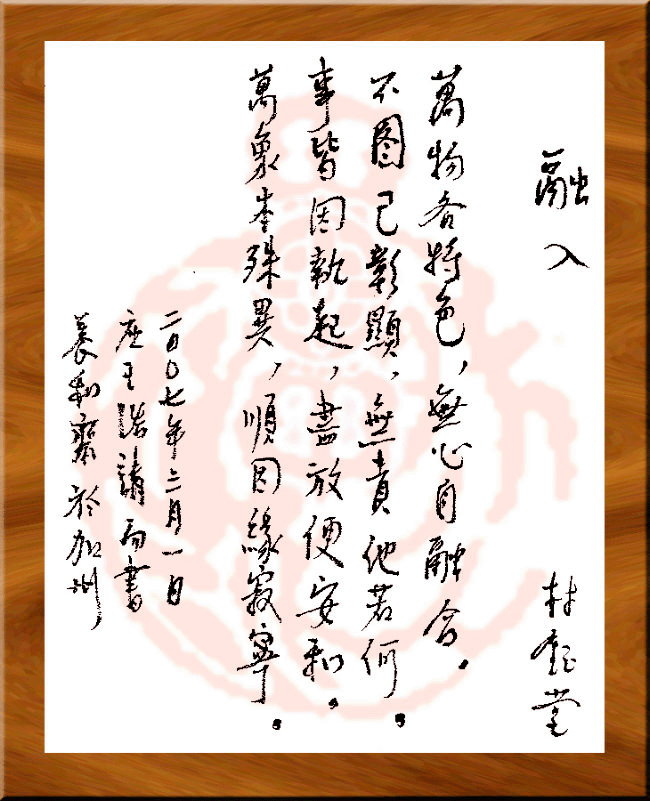 融入
林鈺堂
萬物各特色，無心自融合。
不圖己彰顯，無責他若何。
事皆因執起，盡放便安和。
萬象本殊異，順因緣寂寧。
二〇〇七年三月一日
应王浩請而書
養和齋於加州